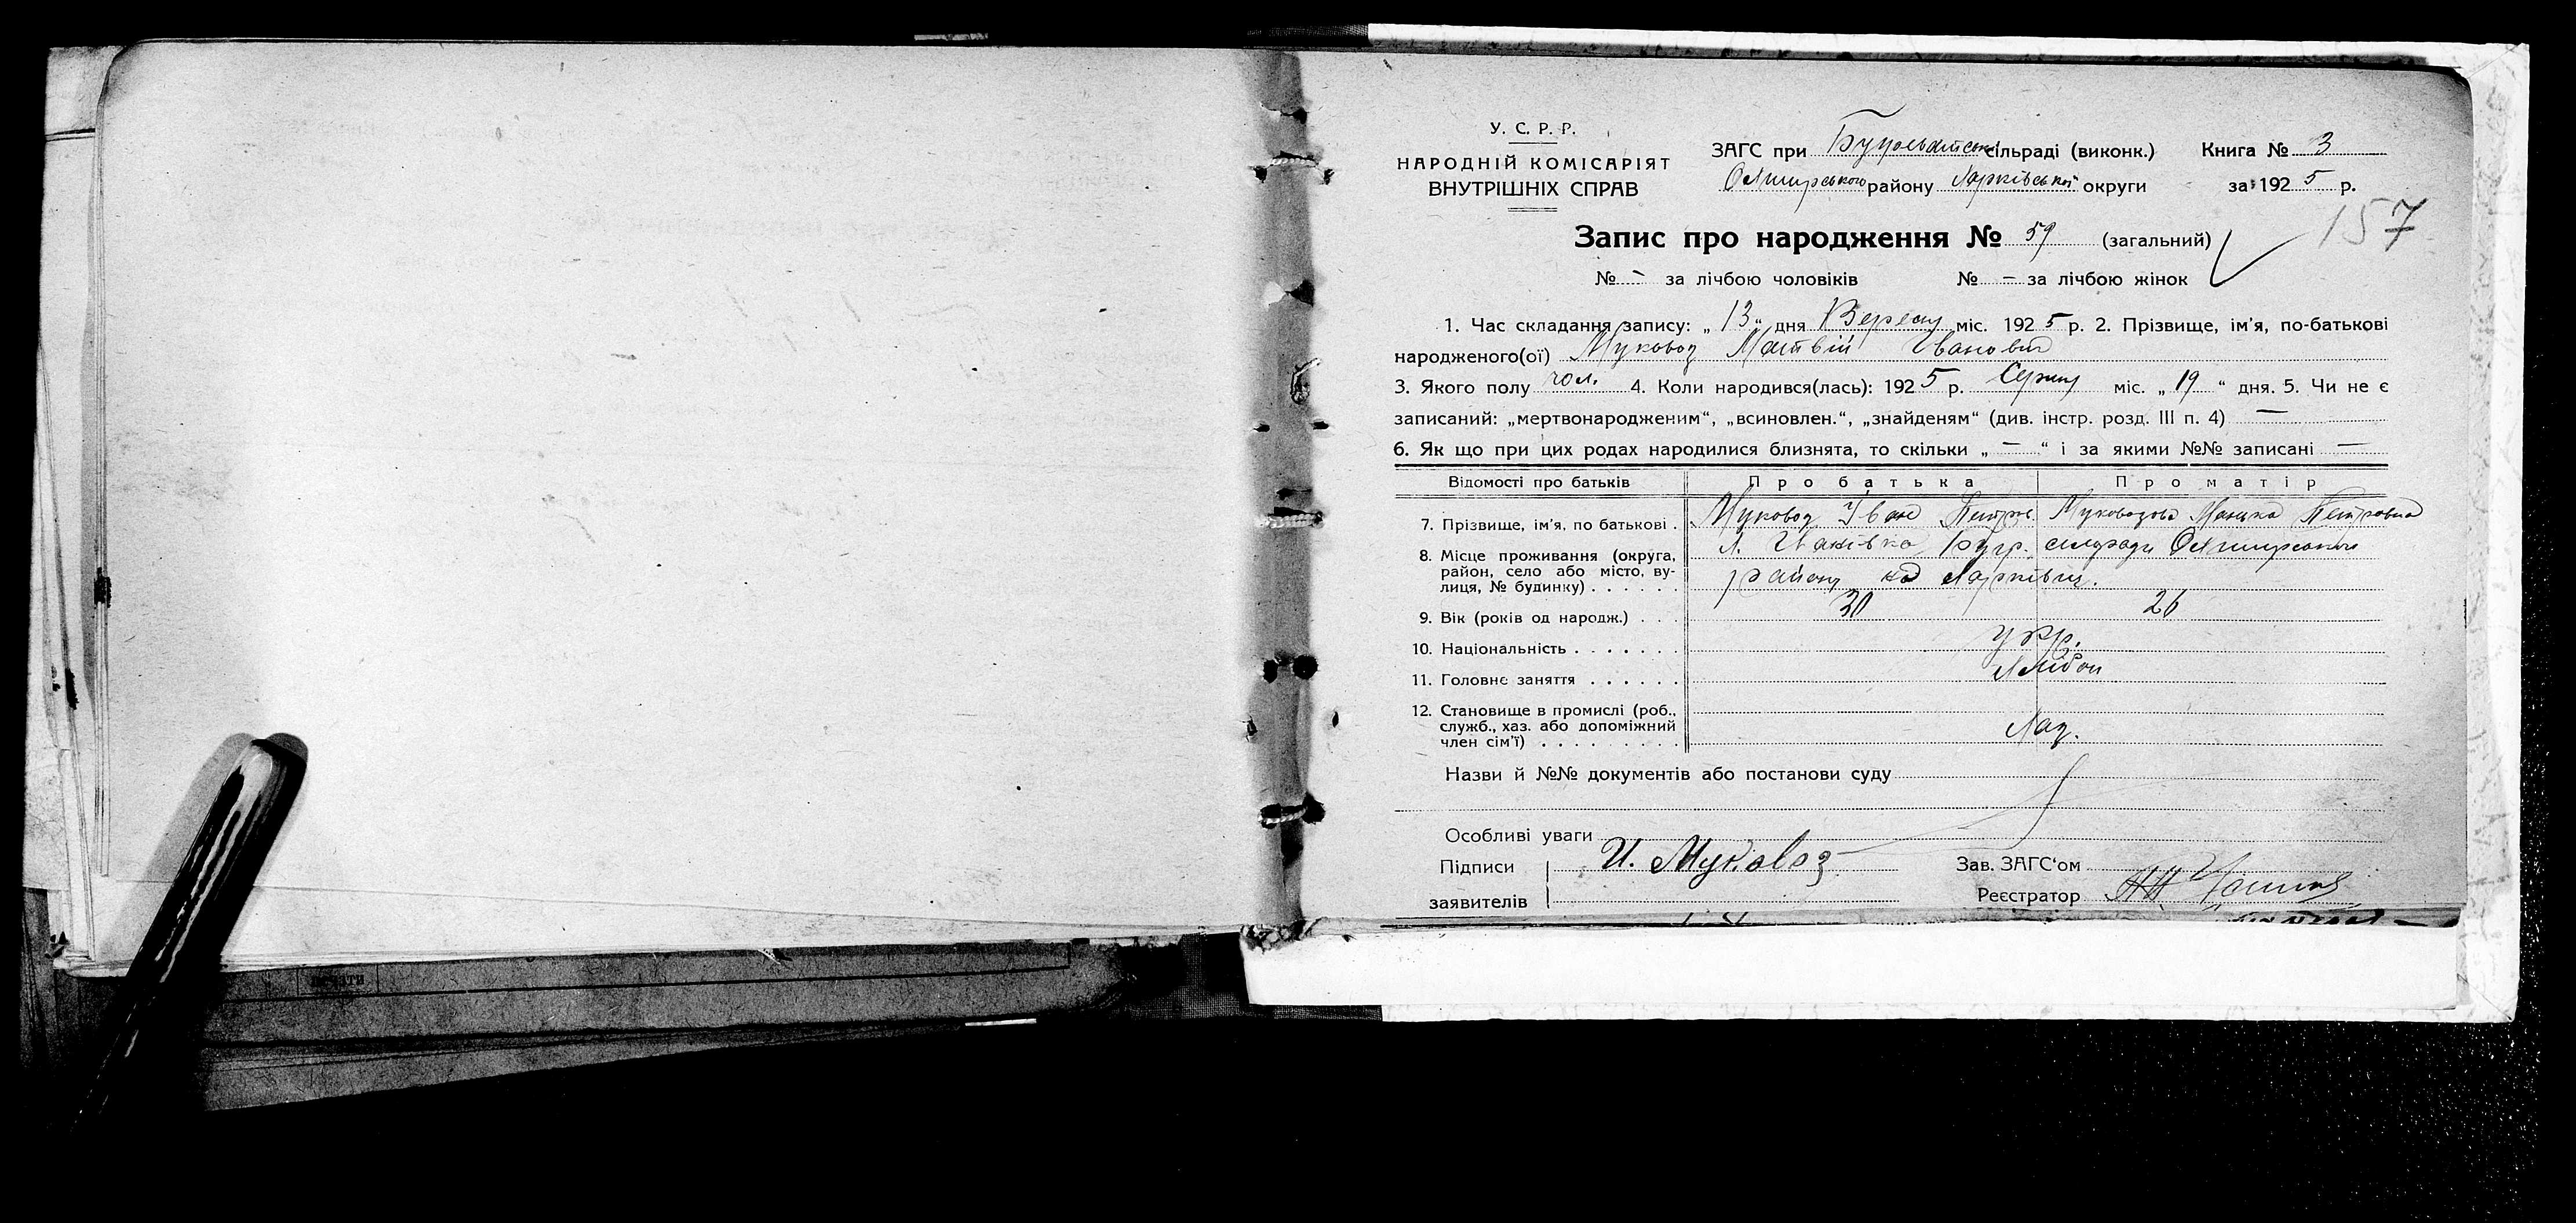 У. С. Р. Р.
НАРОДНІЙ КОМІСАРІЯТ
ВНУТРІШНІХ СПРАВ
ЗАГС при сільраді (виконк.) Книга № 3
району Харківської округи за 1925 р.
157
Запис про народження № 59 (загальний)
№ – за лічбою чоловіків № – за лічбою жінок
1. Час складання запису: „13“ дня Вересня міс. 1925 р. 2. Прізвище, ім’я, по-батькові
народженого(ої) Муковоз Матвій Іванович
3. Якого полу чол. 4. Коли народився(лась): 1925 р. Серпня міс. „19“ дня. 5. Чи не є
записаний: „мертвонародженим“, „всиновлен.“, „знайденям“ (див. інстр. розд. III п. 4) —
6. Як що при цих родах народилися близнята, то скільки „—“ і за якими №№ записані —
Відомості про батьків Про батька Про матір
7. Прізвище, ім’я, по батькові . Муковоз Іван Петров. Муковозова Петровна
8. Місце проживання (округа,
район, село або місто, ву-
лиця, № будинку) . . . . . .
х. Іванівка сільради
району на Харківщ.
9. Вік (років од народж.) . . . 30 26
10. Національність . . . . . . . укр.
11. Головне заняття . . . . . . Хлібоп
12. Становище в промислі (роб.,
служб., хаз. або допоміжний
член сім’ї) . . . . . . . . . Хаз.
Назви й №№ документів або постанови суду
Особливі уваги
Підписи И. Муковоз Зав. ЗАГС‘ом
заявителів Реєстратор